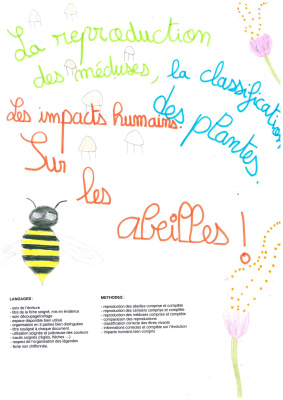 La reproduction
des méduses, la classification
des plantes.
Les impacts humains.
Sur
les
abeilles !
LANGAGES :
- soin de l'écriture
- titre de la fiche soigné, mis en évidence
- soin découpage/collage
- espace disponible bien utilisé
- organisation en 3 parties bien distinguées
- titre souligné à chaque document
- utilisation soignée et judicieuse des couleurs
- tracés soignés (règles, flèches, ...)
- respect de l'organisation des légendes
- fiche non chiffonnée.
METHODES :
- reproduction des abeilles comprise et complète
- reproduction des cerisiers comprise et complète
- reproduction des méduses comprise et complète
- comparaison des reproductions
- classification correcte des êtres vivants
- informations correctes et complète sur l'évolution
- impacts humains bien compris